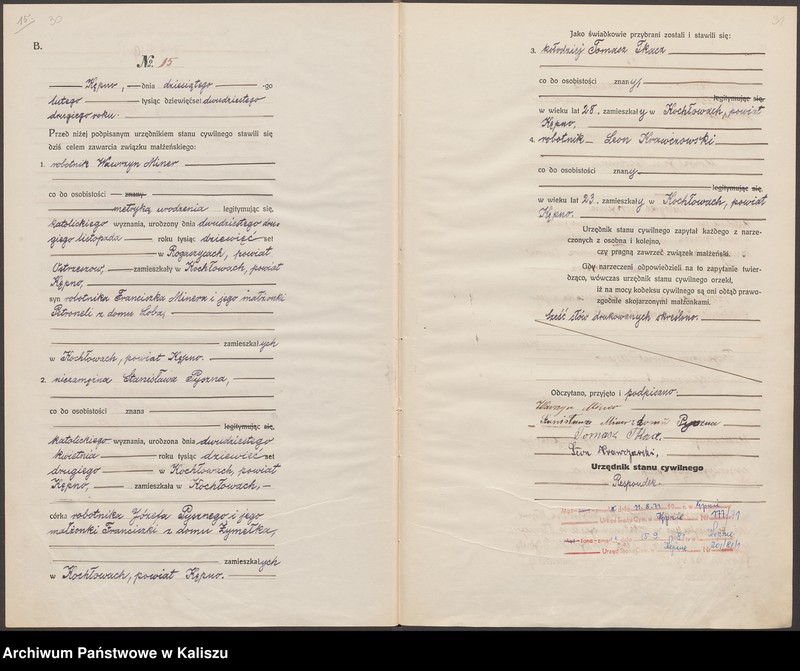 15
30
B.
№ 15
Kępno, dnia dziesiątego -go
lutego tysiąc dziewięćset dwudziestego
drugiego roku.
Przed niżej podpisanym urzędnikiem stanu cywilnego stawili się
dziś celem zawarcia związku małżeńskiego:
1. robotnik Wawrzyn Miner
co do osobistości znany
metryką urodzenia legitymując się,
katolickiego wyznania, urodzony dnia dwudziestego dru-
giego listopada roku tysiąc dziewięć set
w Rogaszycach, powiat
Ostrzeszow, zamieszkały w Kochłowach, powiat
Kępno,
syn robotnika Franciszka Minera i jego małżonki
Petroneli z domu Loba,
zamieszkałych
w Kochłowach, powiat Kępno.
2. niezamężna Stanisława Pyszna,
co do osobistości znana
legitymując się,
katolickiego wyznania, urodzona dnia dwudziestego
kwietnia roku tysiąc dziewięć set
drugiego w Kochłowach, powiat
Kępno, zamieszkała w Kochłowach,
córka robotnika Józefa Pysznego i jego
małżonki Franciszki z domu Zymełka,
zamieszkałych
w Kochłowach, powiat Kępno.
31
Jako świadkowie przybrani zostali i stawili się:
3. kołodziej Tomasz Tkacz
co do osobistości znany,
legitymując się,
w wieku lat 28, zamieszkały w Kochłowach, powiat
Kępno,
4. robotnik Leon Krawczowski
co do osobistości znany
legitymując się.
w wieku lat 23, zamieszkały w Kochłowach, powiat
Kępno.
Urzędnik stanu cywilnego zapytał każdego z narze-
czonych z osobna i kolejno,
czy pragną zawrzeć związek małżeński.
Gdy narzeczeni odpowiedzieli na to zapytanie twier-
dząco, wówczas urzędnik stanu cywilnego orzekł,
iż na mocy kodeksu cywilnego są oni odtąd prawo-
zgodnie skojarzonymi małżonkami.
Sześć słów drukowanych skreślono.
Odczytano, przyjęto i podpisano.
Wawrzyn Miner
Stanisława Miner z domu Pyszna
Tomasz Tkacz,
Leon Krawczowski,
Urzędnik stanu cywilnego
Respondek.
Kępnie
Urząd Stanu Cyw. w Kępnie
Kępnie
Archiwum Państwowe w Kaliszu